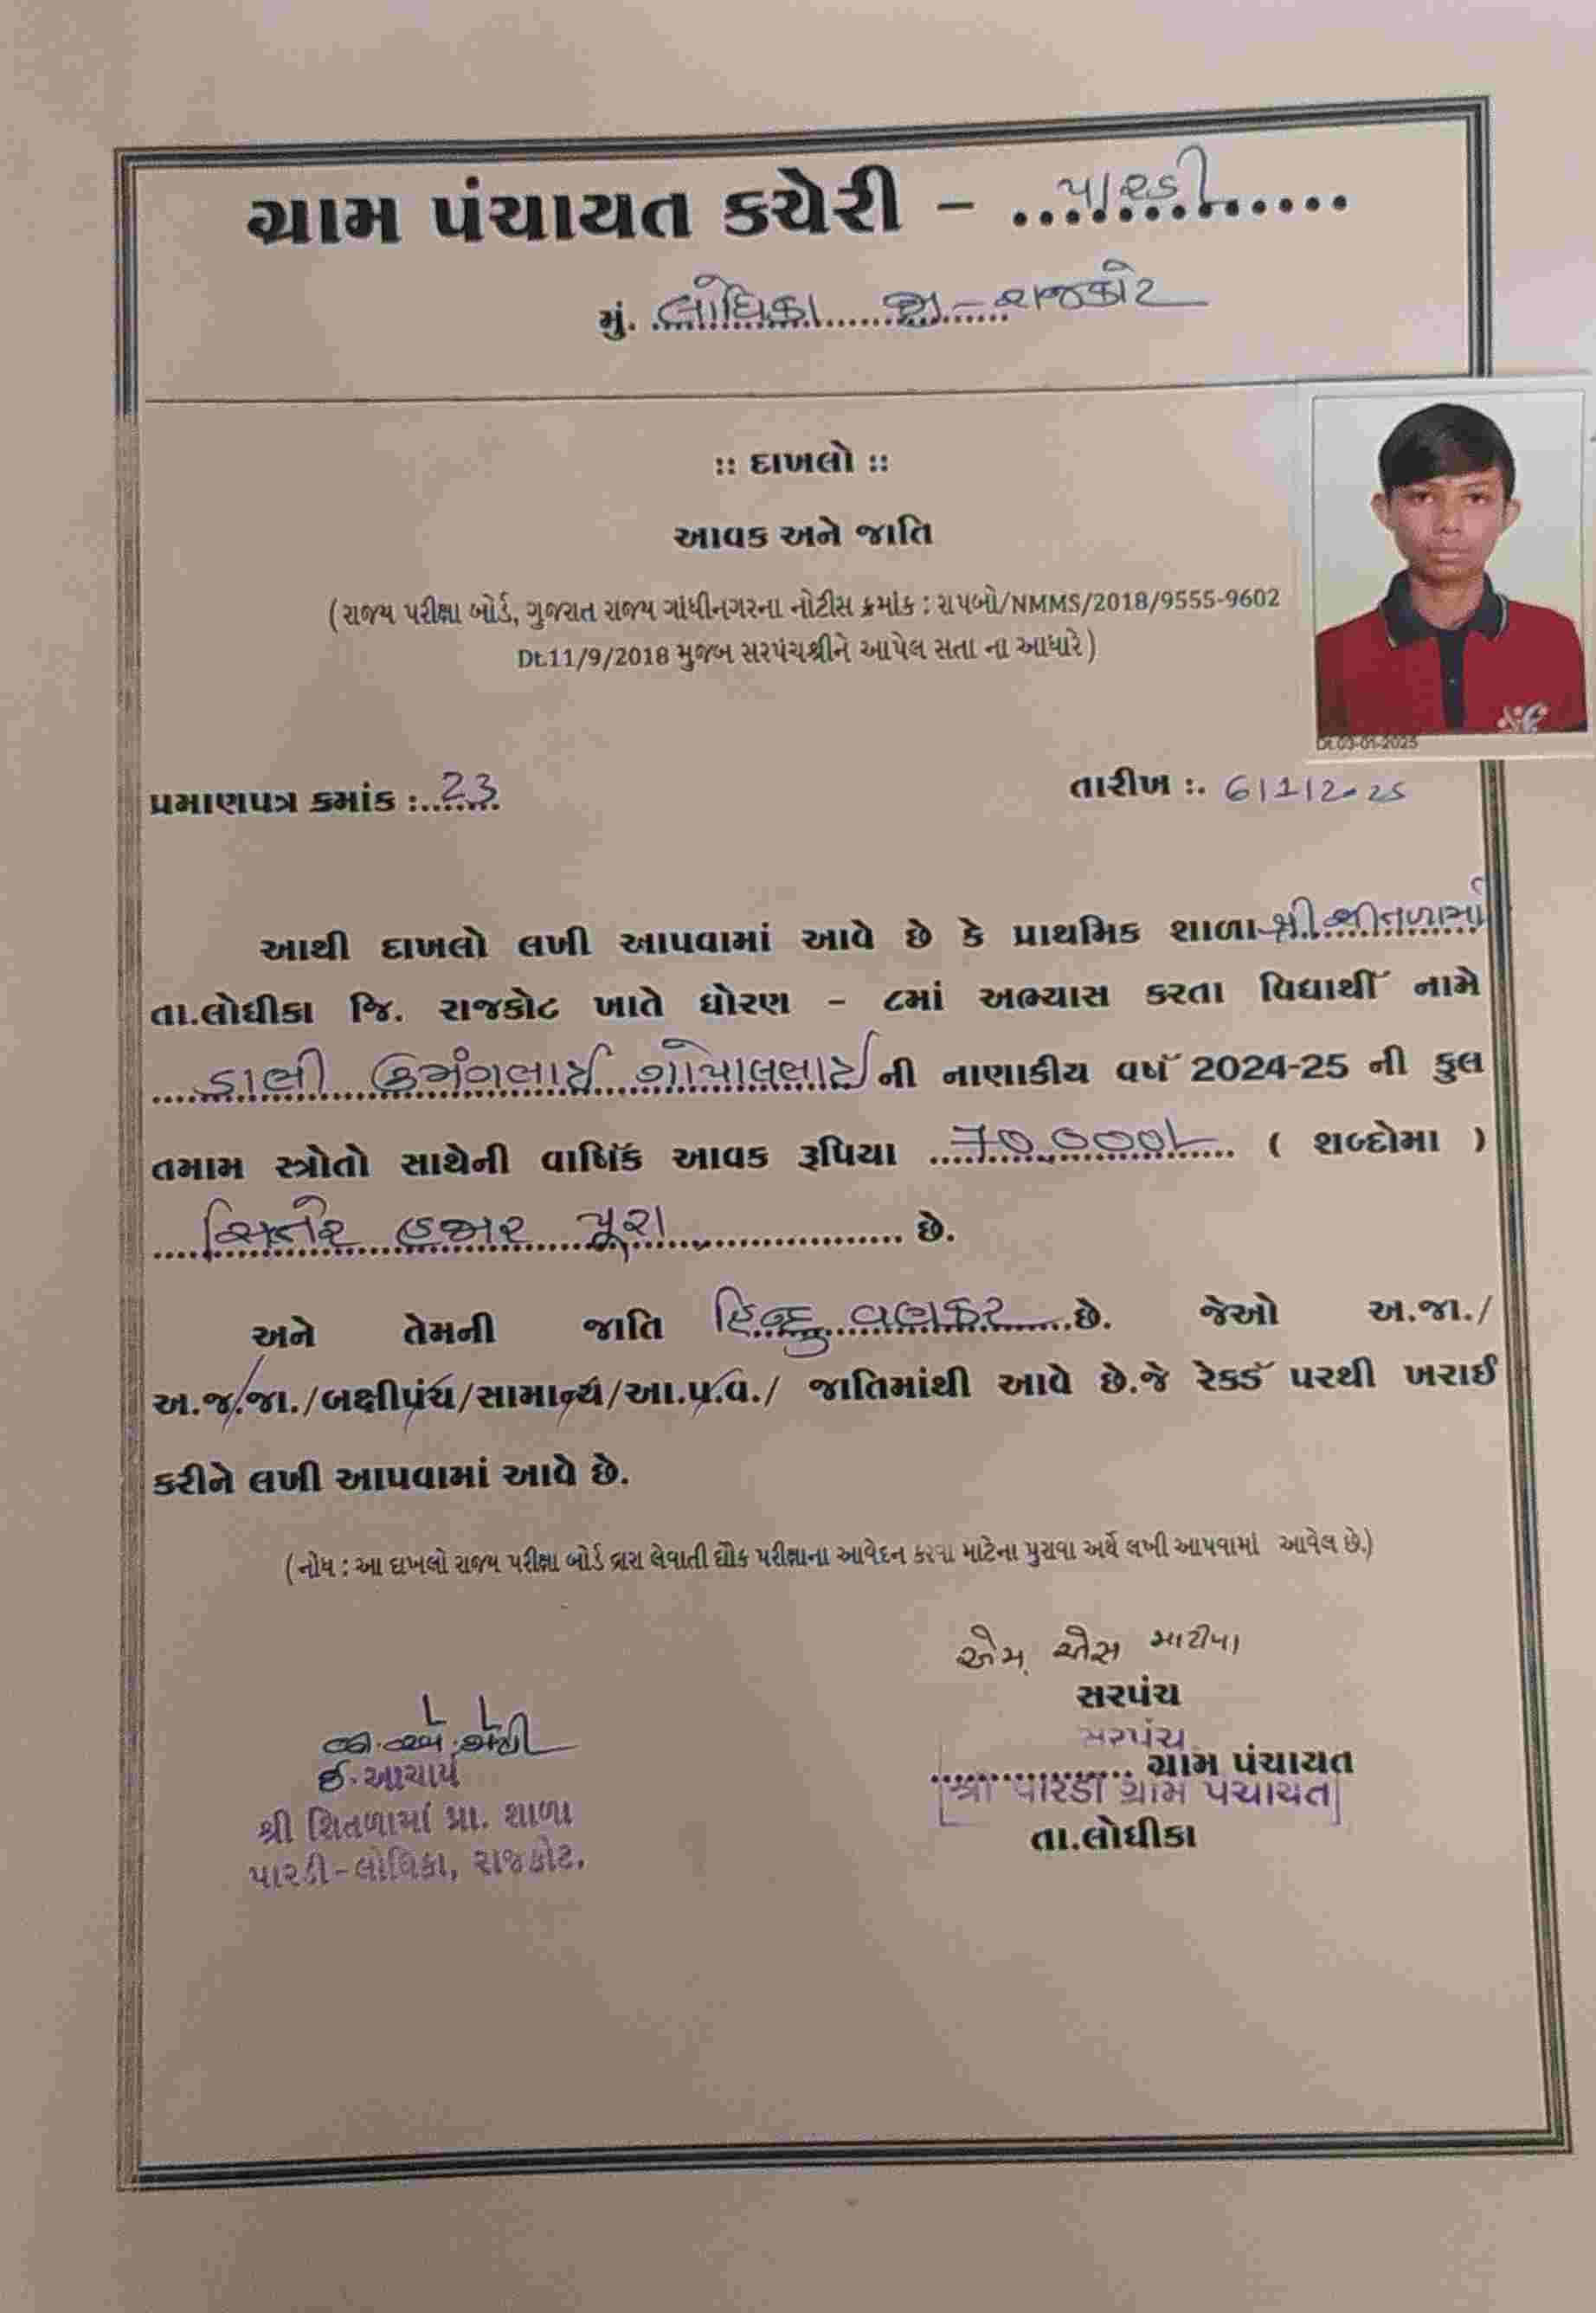 ગ્રામ પંચાયત કચેરી – પારડી
મું. લોધિકા જી - રાજકોટ
:: દાખલો ::
આવક અને જાતિ
(રાજ્ય પરીક્ષા બોર્ડ, ગુજરાત રાજ્ય ગાંધીનગરના નોટીસ ક્રમાંક : રાપબો/NMMS/2018/9555-9602
Dt.11/9/2018 મુજબ સરપંચશ્રીને આપેલ સતા ના આધારે)
Dt.03-01-2025
પ્રમાણપત્ર ક્રમાંક :..23
તારીખ :. 6/1/2025
આથી દાખલો લખી આપવામાં આવે છે કે પ્રાથમિક શાળા શ્રી શીતળામાં
તા.લોધીકા જિ. રાજકોટ ખાતે ધોરણ - ૮માં અભ્યાસ કરતા વિદ્યાર્થી નામે
ડાભી ઉમંગભાઈ ગોપાલભાઈ ની નાણાકીય વર્ષ 2024-25 ની કુલ
તમામ સ્ત્રોતો સાથેની વાર્ષિક આવક રૂપિયા 70,000/- ( શબ્દોમા )
સિતેર હજાર પૂરા છે.
અને તેમની જાતિ હિન્દુ વણકર છે. જેઓ અ.જા./
અ.જ.જા./બક્ષીપંચ/સામાન્ય/આ.પ.વ./ જાતિમાંથી આવે છે.જે રેકર્ડ પરથી ખરાઈ
કરીને લખી આપવામાં આવે છે.
(નોધ : આ દાખલો રાજ્ય પરીક્ષા બોર્ડ દ્વારા લેવાતી શૈક પરીક્ષાના આવેદન કરવા માટેના પુરાવા અર્થે લખી આપવામાં આવેલ છે.)
એમ. એસ
સરપંચ
સરપંચ
ગ્રામ પંચાયત
શ્રી પારડી ગ્રામ પંચાયત
તા.લોધીકા
ઈ.આચાર્ય
શ્રી શિતળામાં પ્રા. શાળા
પારડી-લોધિકા, રાજકોટ.